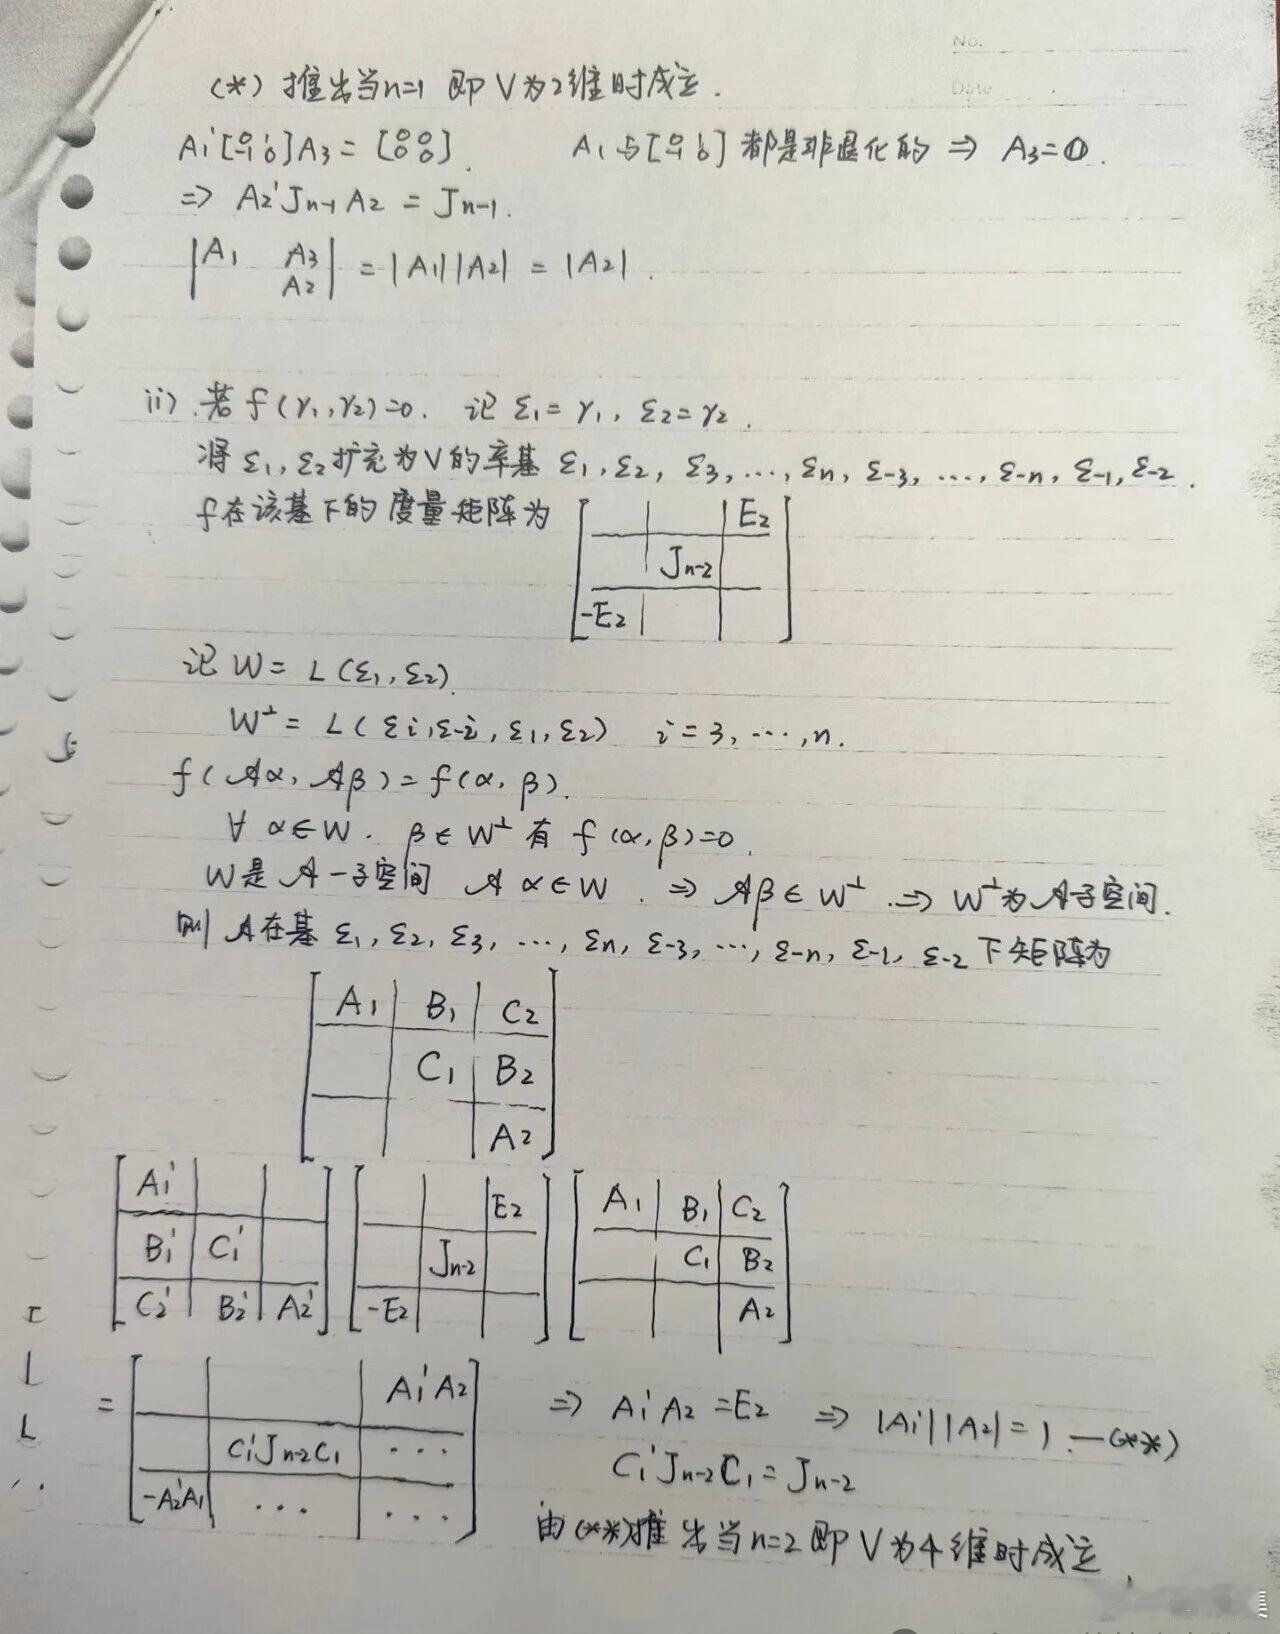 No.
Date
(*) 推出当n=1 即 V为2维时成立.
A₁'[0 1 -1 0]A₃ = [0 0 0 0]. A₁与[0 1 -1 0]都是非退化的 ⇒ A₃=0.
⇒ A₂'Jn-1A₂ = Jn-1.
|A₁ A₃ A₂| = |A₁||A₂| = |A₂|.
ii) 若 f(γ₁,γ₂)=0. 记 ε₁=γ₁, ε₂=γ₂.
将 ε₁,ε₂扩充为V的辛基 ε₁,ε₂,ε₃,…,εn,ε-3,…,ε-n,ε-1,ε-2.
f在该基下的度量矩阵为
E₂
Jn-2
-E₂
记 W= L(ε₁,ε₂).
W⊥= L(εi,ε-i,ε₁,ε₂) i=3,…,n.
f(𝒜α, 𝒜β)=f(α,β).
∀ α∈W. β∈W⊥ 有 f(α,β)=0.
W是𝒜-子空间 𝒜α∈W. ⇒ 𝒜β∈W⊥. ⇒ W⊥为𝒜子空间.
则 𝒜在基 ε₁,ε₂,ε₃,…,εn,ε-3,…,ε-n,ε-1,ε-2下矩阵为
A₁ B₁ C₂
C₁ B₂
A₂
A₁' E₂ A₁ B₁ C₂
B₁' C₁' Jn-2 C₁ B₂
C₂' B₂' A₂' -E₂ A₂
= A₁'A₂ ⇒ A₁'A₂=E₂ ⇒ |A₁'||A₂|=1.—(**)
C₁'Jn-2C₁ … C₁'Jn-2C₁=Jn-2
-A₂'A₁ … …
由(**)推出当n=2即V为4维时成立.